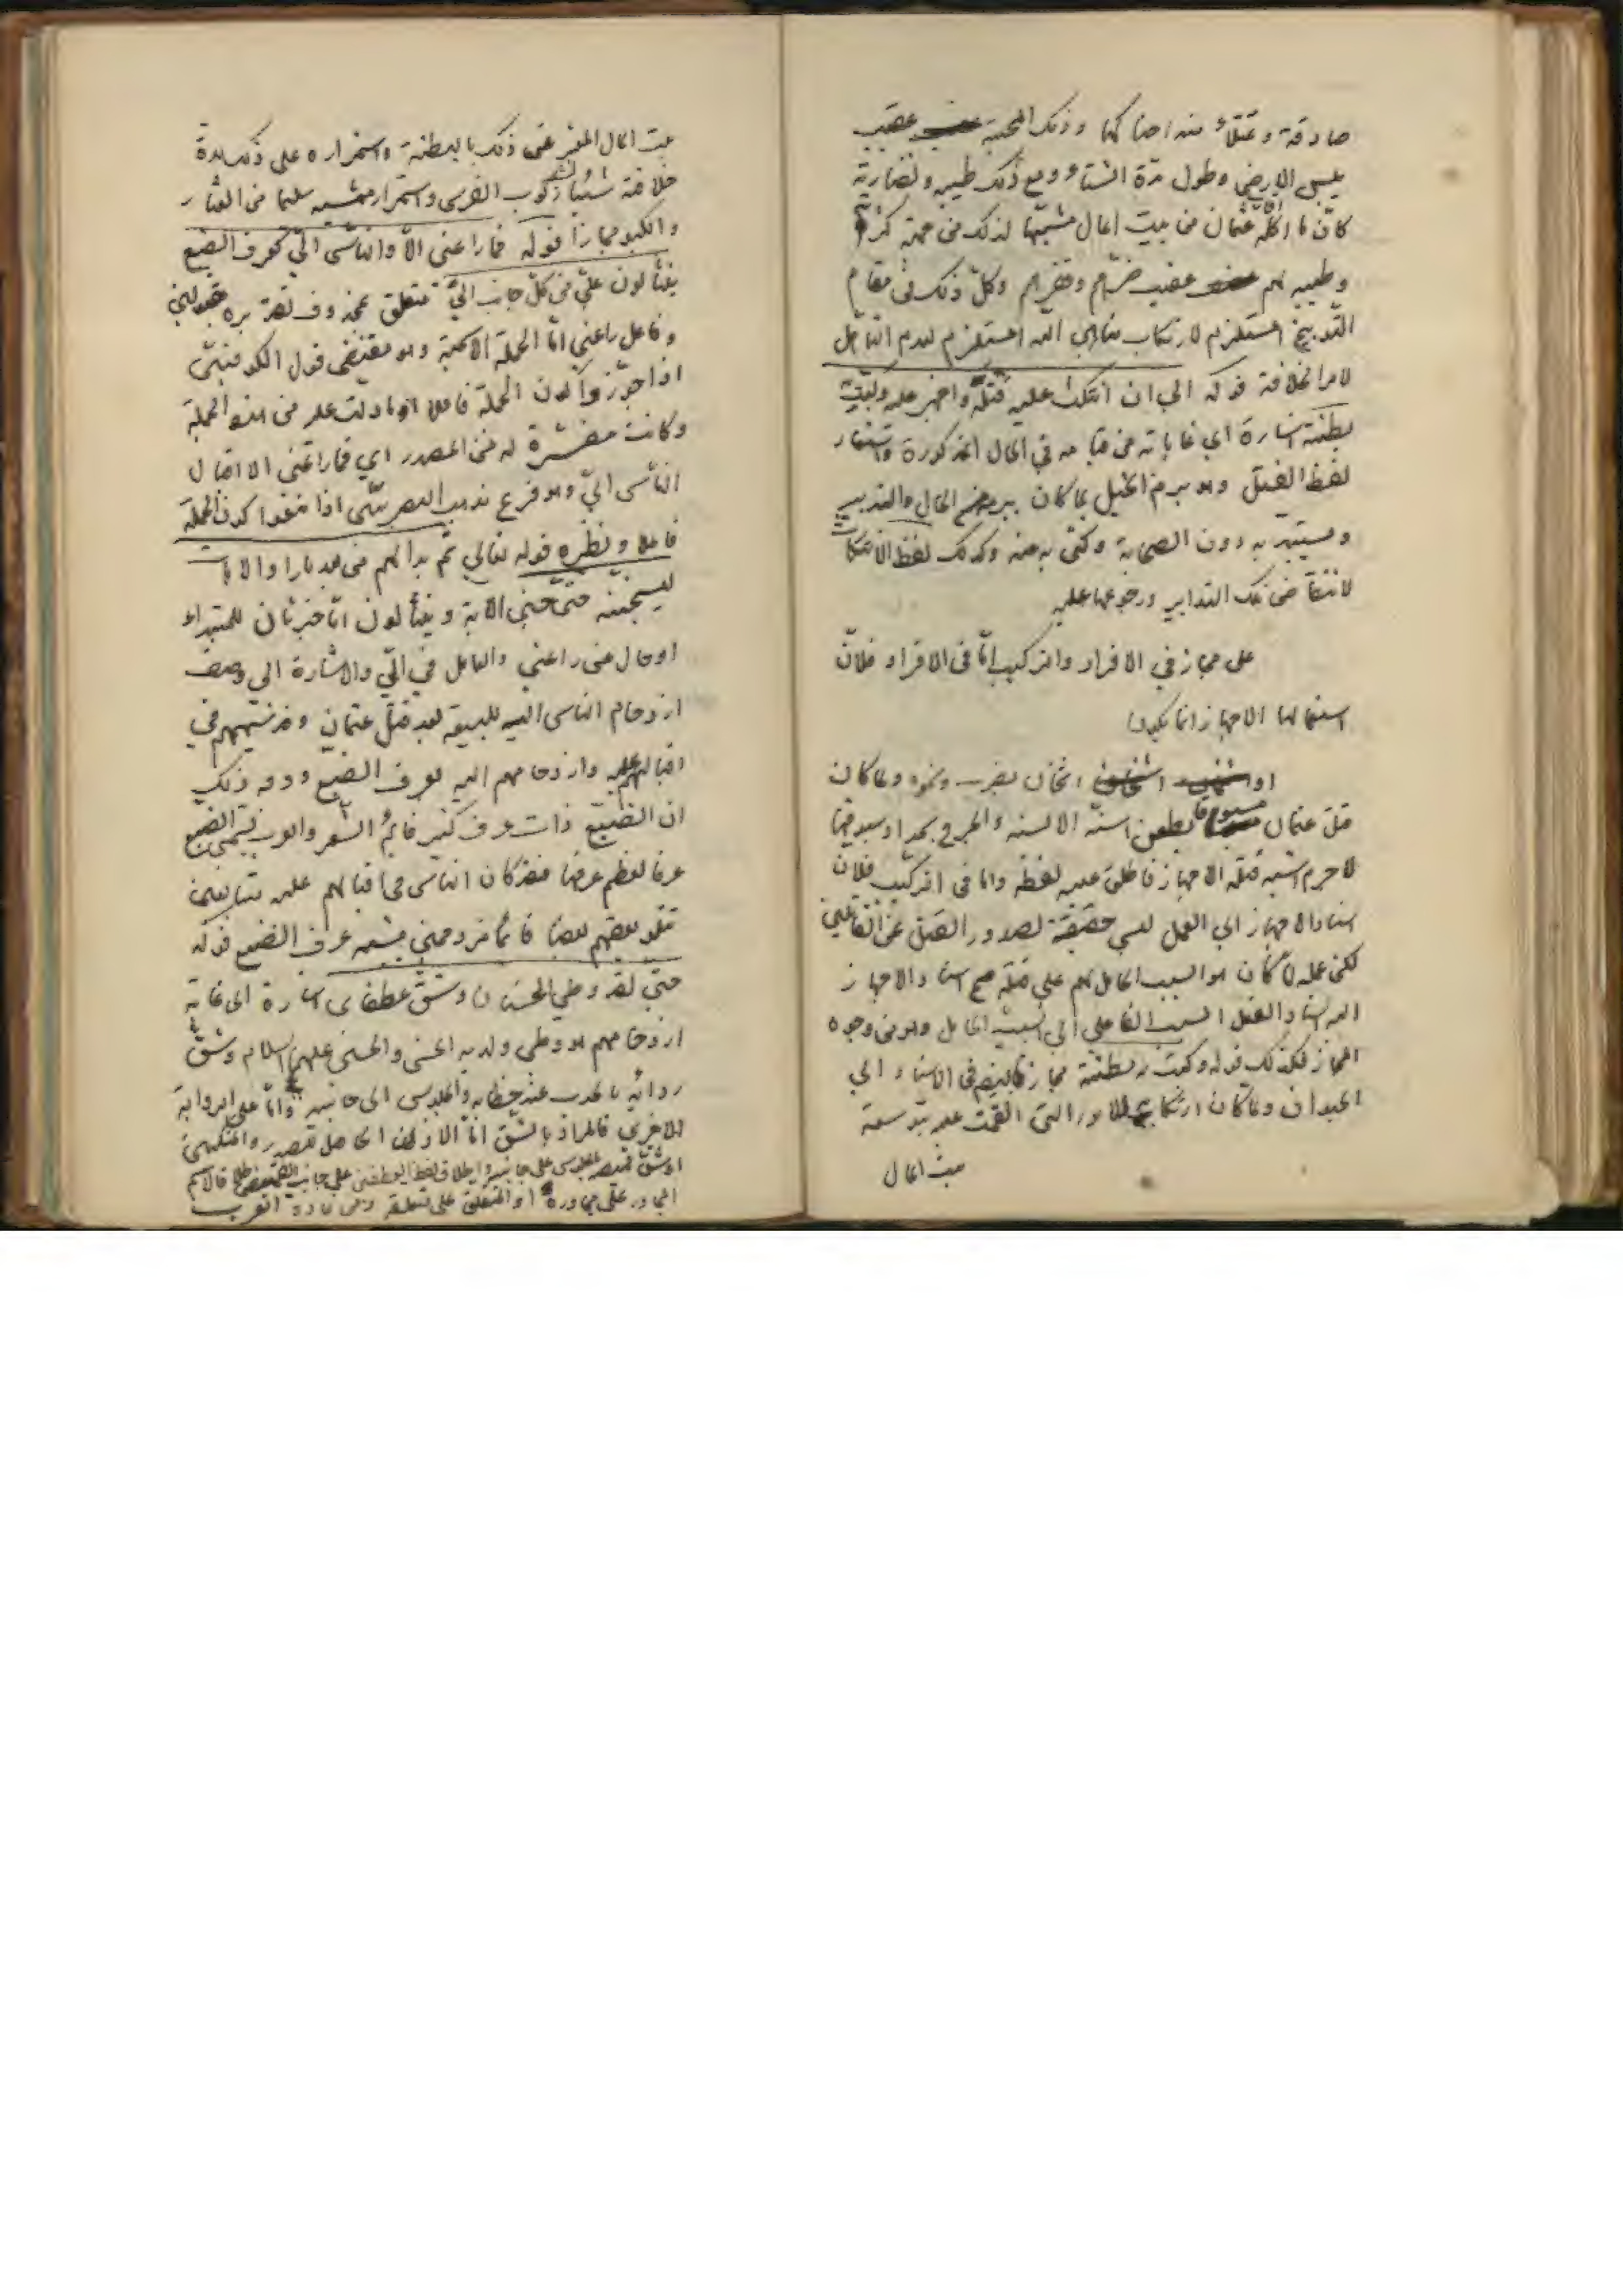 صادقة وتمتلأ منه احناكها وذلك لمجيئه عقيب
يبس الارض وطول مدّة الشتاء ومع ذلك طيبه ونضارته
كان ما اكله عثمان من بيت المال مشبها لذلك من جهة كثرته
وطيبه لهم عقيب ضرّهم وفقرهم وكلّ ذلك في مقام
التوبيخ المستلزم لارتكاب مناهي الله المستلزم لعدم التأهل
لامر الخلافة قوله الى ان انتكث عليه فتله واجهز عليه وكبت به
بطنته اشارة اى غاياته من قيامه في الحال المذكورة واستعار
لفظ الفتل وهو برم الحبل لما كان يبرمه من الحال والتدبير
ويستبد به دون الصحابة وكنّى به عنه وكذلك لفظ الانتكاث
لانتقاض تلك التدابير ورجوعها عليه
على مجاز في الافراد والتركيب امّا في الافراد فلانّ
استعمال الاجهاز انما يكون
اثخان بضرب ونحوه ولما كان
قتل عثمان مسبوقا بطعن اسنّة الالسنه والجرح بحد او سيوفها
لاجرم اشبه قتله الاجهاز فاطلق عليه لفظه واما في التركيب فلان
اسناد الاجهاز الى العمل ليس حقيقة لصدور القتل عن القاتلين
لكن عمله لمّا كان هو السبب الحامل لهم على قتله صح اسناد الاجهاز
اليه اسناد الفعل السبب الفاعلى الى السبب الحامل وهو من وجوه
المجاز فكذلك قوله وكبت به بطنته مجاز ايضا في الاسناد الى
الحيوان ولما كان ارتكابه للامور التي نقمت عليه بتوسعه
بيت المال
بيت المال المعبر عن ذلك بالبطنة واستمراره على ذلك مدة
خلافته شبها ركوب الفرس واستمرار مشيه سليما من العثار
والكبو مجازا قوله فما راعنى الاّ والناس الىّ كعرف الضبع
ينثالون علىّ من كلّ جانب الىّ متعلق بمحذوف تقديره مقبولين
وفاعل راعنى امّا الجملة الاسمية وهو مقتضى قول الكوفيين
اذا جوّزوا كون الجملة فاعلا او ما دلت عليه من هذه الجملة
وكانت مفسّرة له من المصدر اى فما راعنى الا اقبال
الناس الىّ وهو فرع مذهب البصريين اذا منعوا كون الجملة
فاعلا ونظيره قوله تعالى ثم بدا لهم من بعد ما راوا الآيات
ليسجننه حتى حين الاية وينثالون امّا خبر ثان للمبتداء
او حال من راعنى والعامل في الىّ والاشارة الى وصف
ازدحام الناس اليه للبيعة بعد قتل عثمان وقد شبههم في
اقبالهم عليه وازدحامهم اليه بعرف الضبع ووجه ذلك
ان الضبع ذات عرف كثير قايم الشعر والعرب تسمى الضبع
عرفا لعظم عرفها فقد كان الناس في اقبالهم عليه متتابعين
يتلو بعضهم بعضا قائما مزدحمين يشبه عرف الضبع قوله
حتى لقد وطى الحسنان وشقّ عطفاى اشارة الى غاية
ازدحامهم هو وطى ولديه الحسن والحسين عليهما السلام وشقّ
ردائه بالجذب عند خطابه والجلوس الى جانبيه وامّا على الرواية
الاخرى فالمراد بالشق امّا الاذى الحاصل للصدر والمنكبين
او شقّ قميصه بالجلوس على جانبيه واطلاق لفظ العطفين على جانبى القميص اطلاقا لاسم
المجاور على مجاوره او المتعلق على متعلقه ومن عادة العرب